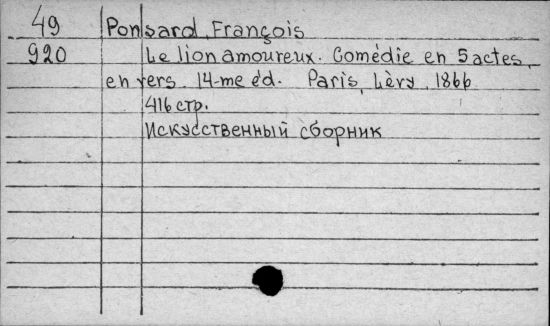 49 Ponsard, François
920 Le lion amoureux. Comédie en 5 actes,
en vers. 14-me éd. Paris, Lèvy, 1866
416 стр.
Искусственный сборник